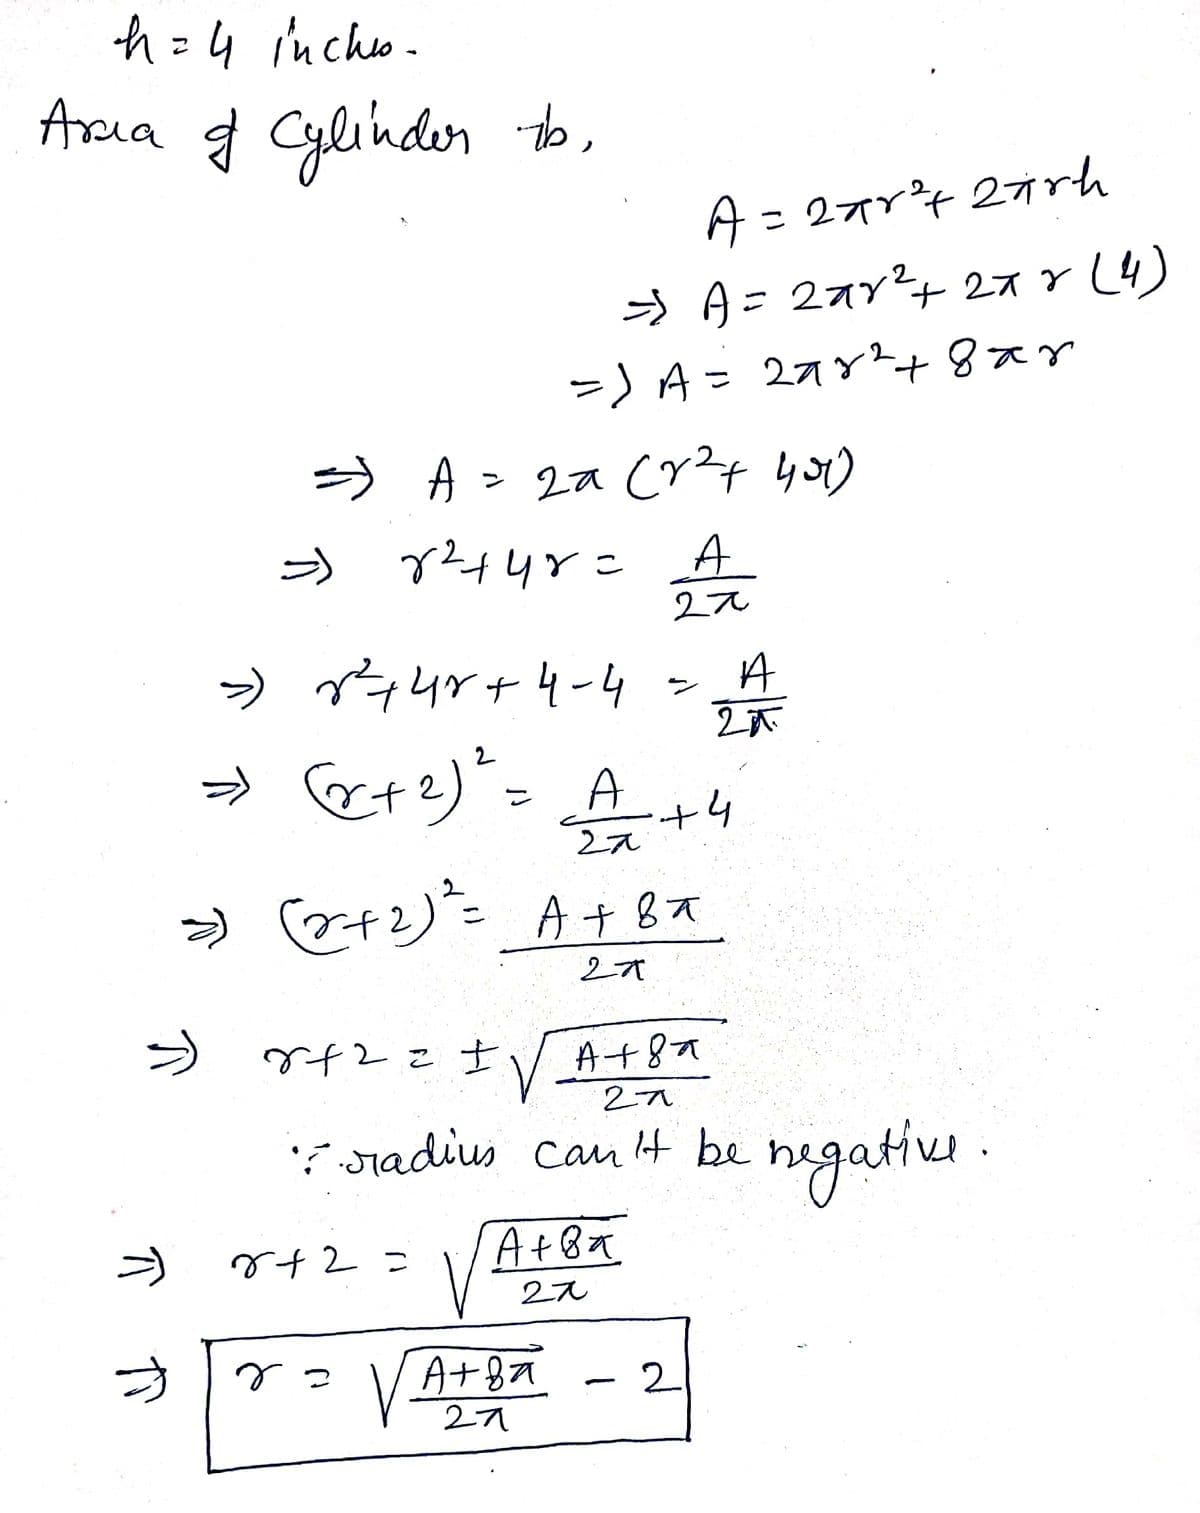 h = 4 inches.
Area of Cylinder is,
A = 2πr² + 2πrh
⇒ A = 2πr² + 2πr (4)
⇒ A = 2πr² + 8πr
⇒ A = 2π (r² + 4r)
⇒ r² + 4r = A/2π
⇒ r² + 4r + 4 - 4 = A/2π
⇒ (r+2)² = A/2π + 4
⇒ (r+2)² = (A + 8π)/2π
⇒ r+2 = ± √((A+8π)/2π)
∵ radius can't be negative.
⇒ r+2 = √((A+8π)/2π)
⇒ r = √((A+8π)/2π) - 2